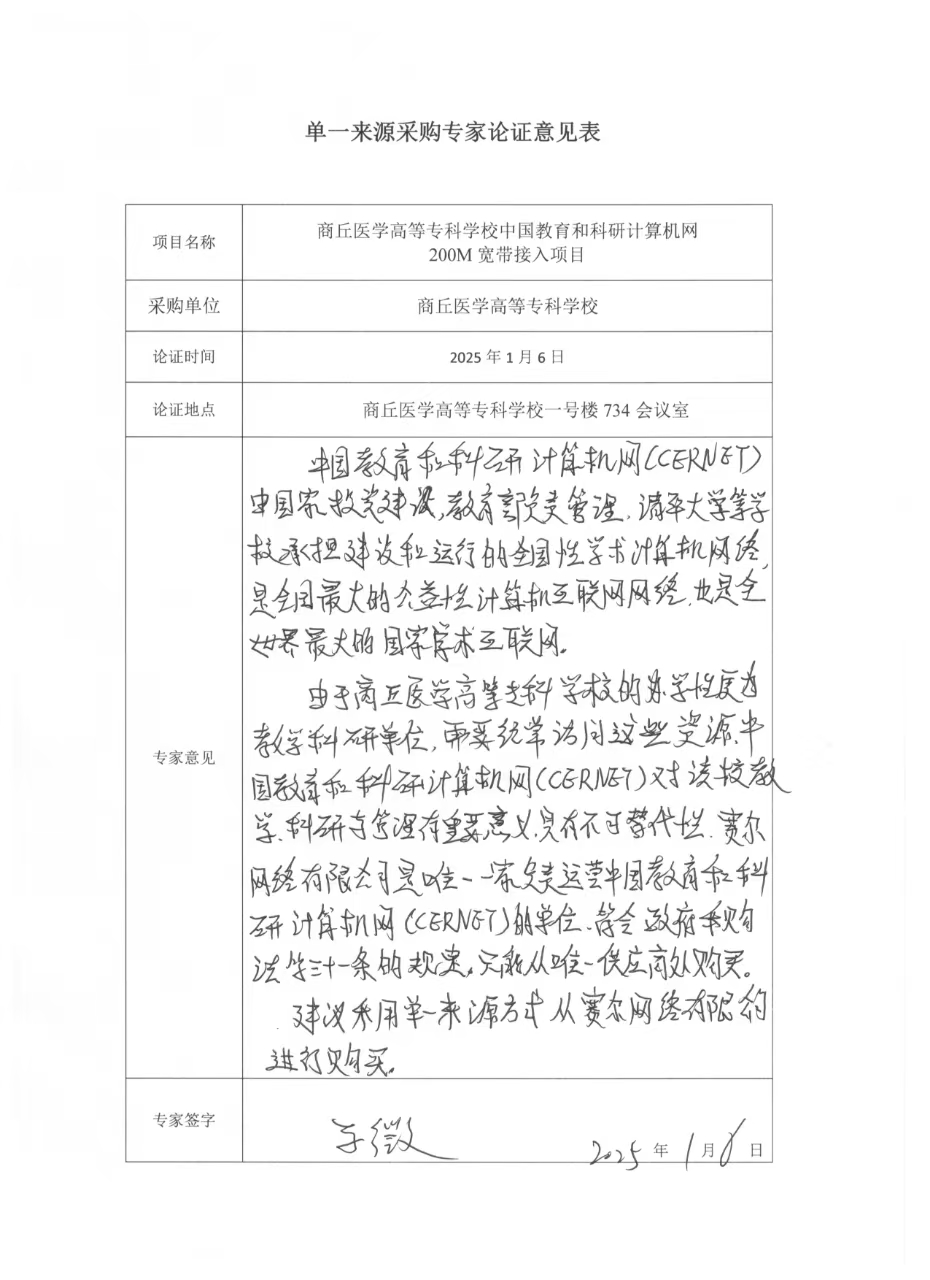 单一来源采购专家论证意见表
项目名称
商丘医学高等专科学校中国教育和科研计算机网
200M 宽带接入项目
采购单位
商丘医学高等专科学校
论证时间
2025 年 1 月 6 日
论证地点
商丘医学高等专科学校一号楼 734 会议室
专家意见
中国教育和科研计算机网(CERNET)
由国家投资建设,教育部负责管理,清华大学等学
校承担建设和运行的全国性学术计算机网络,
是全国最大的公益性计算机互联网网络,也是全
世界最大的国家学术互联网。
由于商丘医学高等专科学校的办学性质为
教学科研单位,需要经常访问这些资源,中
国教育和科研计算机网(CERNET)对该校教
学、科研与管理有重要意义,具有不可替代性。赛尔
网络有限公司是唯一一家负责运营中国教育和科
研计算机网(CERNET)的单位,符合政府采购
法第三十一条的规定,只能从唯一供应商处购买。
建议采用单一来源方式从赛尔网络有限公司
进行购买。
专家签字
2025 年 1 月 6 日